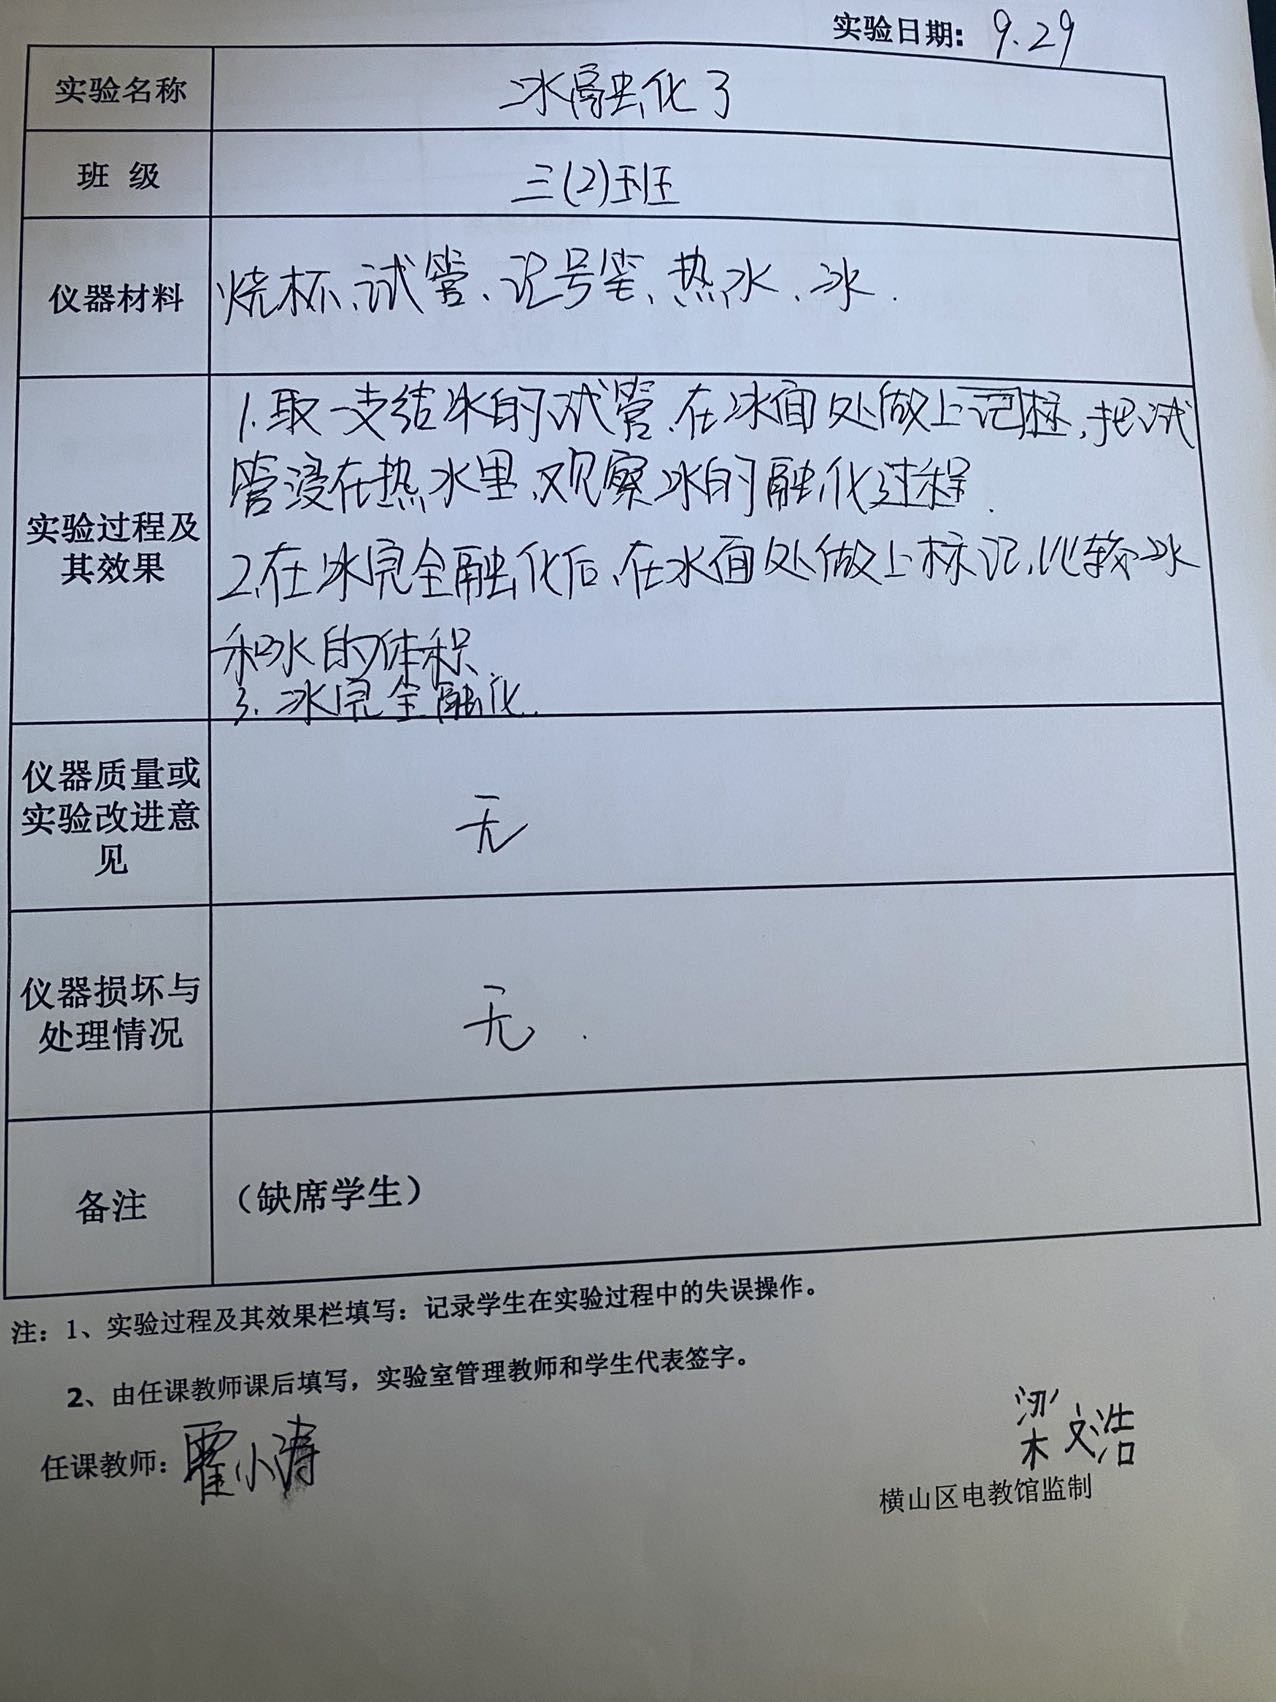 实验日期: 9.29
实验名称 冰融化了
班 级 三(2)班
仪器材料 烧杯、试管、记号笔、热水、冰.
1.取一支结冰的试管.在冰面处做上记标,把试
管浸在热水里,观察冰的融化过程.
实验过程及
其效果
2.在冰完全融化后,在水面处做上标记,比较冰
和水的体积.
3.冰完全融化.
仪器质量或
实验改进意
见
无
仪器损坏与
处理情况
无.
备注 （缺席学生）
注：1、实验过程及其效果栏填写：记录学生在实验过程中的失误操作。
2、由任课教师课后填写，实验室管理教师和学生代表签字。
任课教师: 霍小涛
梁文浩
横山区电教馆监制